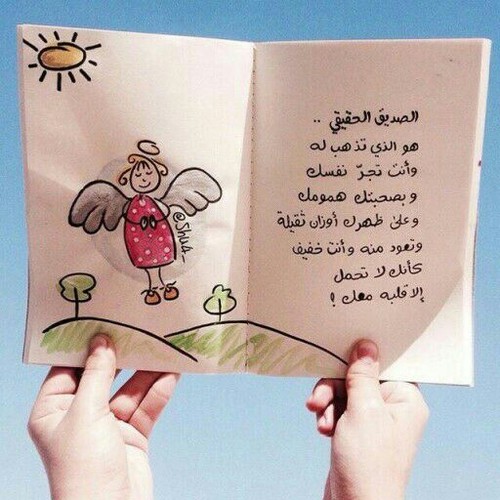 @Shu4_
الصديق الحقيقي ..
هو الذي تذهب له
وأنت تجرّ نفسك
و بصحبتك همومك
و على ظهرك أوزان ثقيلة
وتعود منه وأنت خفيف
كأنك لا تحمل
إلا قلبه معك !